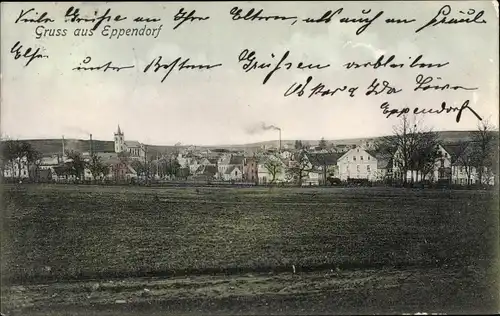 Viele Grüsse an Ihre Eltern und auch an Fräul
Gruss aus Eppendorf
Ella
unter besten Grüssen verbleiben
Oskar & Ida
Eppendorf